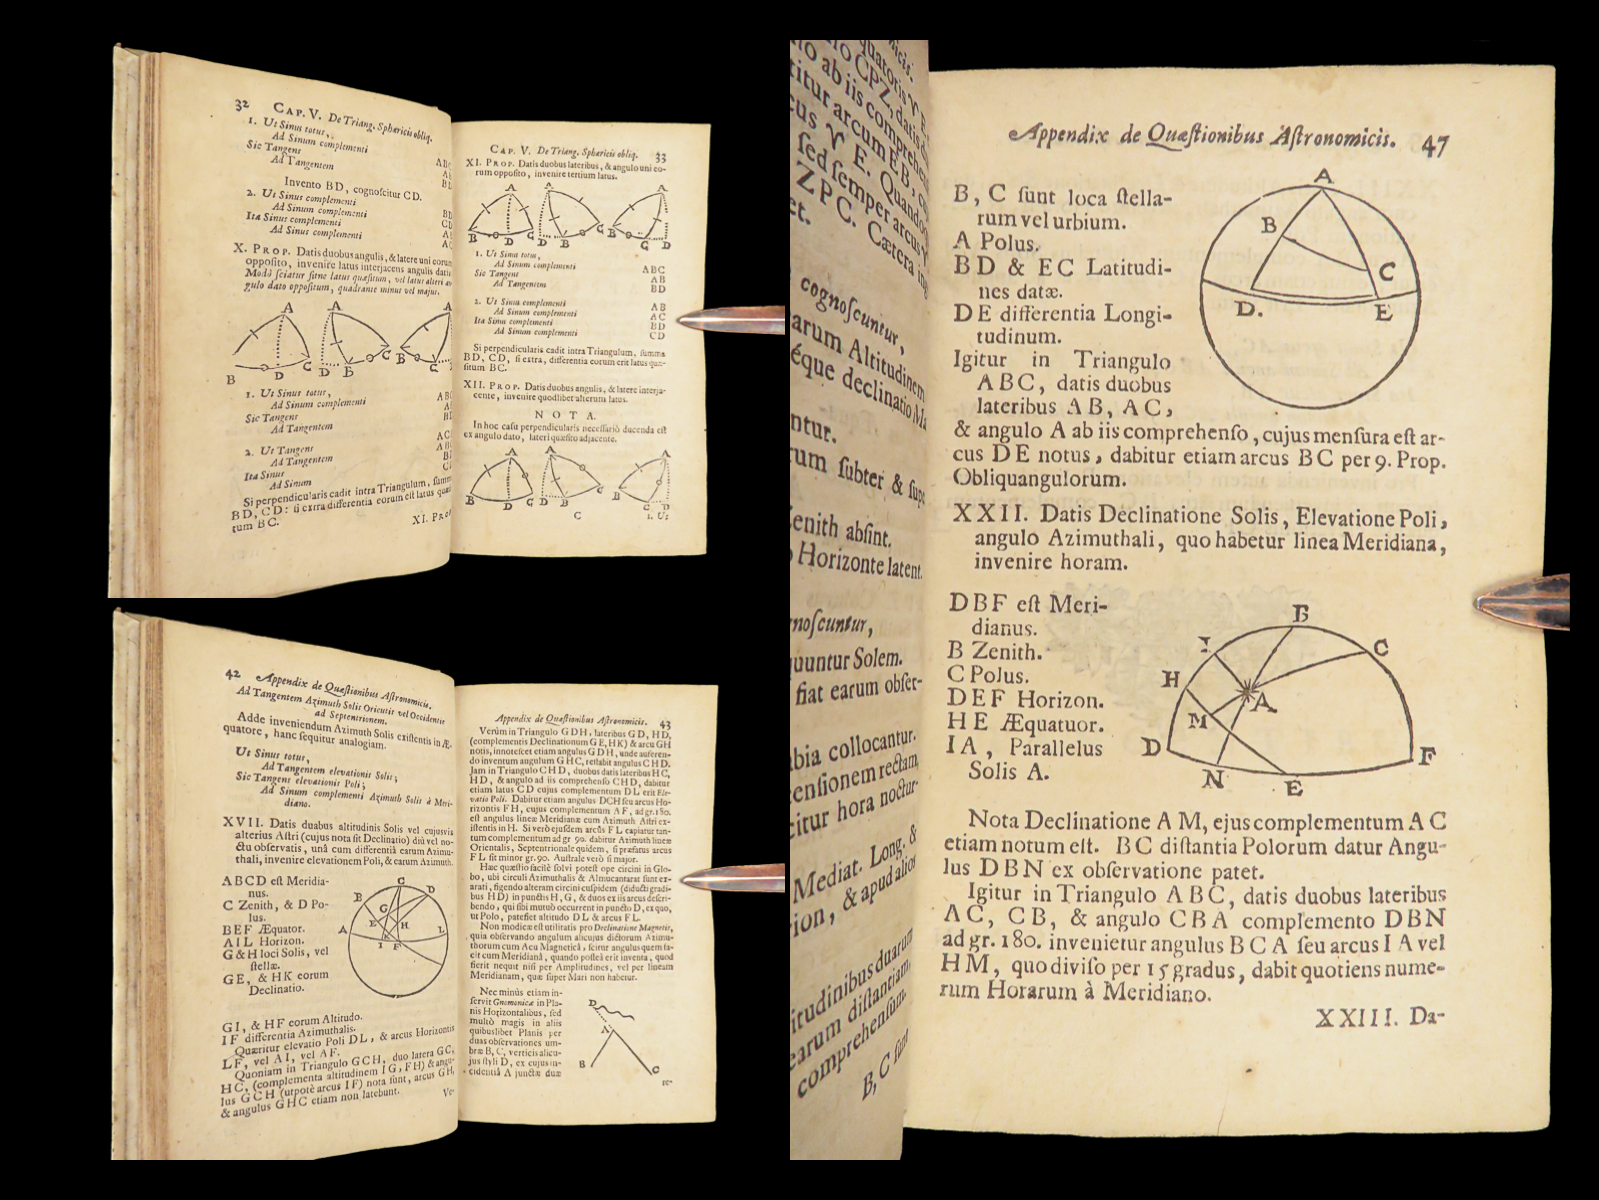 32 CAP. V. De Triang. Sphæricis obliq.
1. Ut Sinus totus,
Ad Sinum complementi
Sic Tangens
Ad Tangentem
Invento BD, cognoſcitur CD.
2. Ut Sinus complementi
Ad Sinum complementi
Ita Sinus complementi
Ad Sinus complementi
X. PROP. Datis duobus angulis, & latere uni eorum
oppoſito, invenire latus interjacens angulis datis
Modò ſciatur ſitne latus quæſitum, vel latus alteri an
gulo dato oppoſitum, quadrante minus vel majus.
A A A
B D C D B C B C
1. Ut Sinus totus,
Ad Sinum complementi
Sic Tangens
Ad Tangentem
2. Ut Tangens
Ad Tangentem
Ita Sinus
Ad Sinum
Si perpendicularis cadit intra Triangulum, ſumm
BD, CD: ſi extra differentia eorum eſt latus quæſi
tum BC.
XI. PRO
CAP. V. De Triang. Sphæricis obliq. 33
XI. PROP. Datis duobus lateribus, & angulo uni eo-
rum oppoſito, invenire tertium latus.
A A A
B D C D B C B C D
1. Ut Sinus totus,
Ad Sinum complementi ABC
Sic Tangens AB
Ad Tangentem BD
2. Ut Sinus complementi AB
Ad Sinum complementi AC
Ita Sinus complementi BD
Ad Sinum complementi CD
Si perpendicularis cadit intra Triangulum, ſumma
BD, CD, ſi extra, differentia eorum erit latus quæ-
ſitum BC.
XII. PROP. Datis duobus angulis, & latere interja-
cente, invenire quodlibet alterum latus.
NOTA.
In hoc caſu perpendicularis neceſſariò ducenda eſt
ex angulo dato, lateri quæſito adjacente.
A A A
B D C D B C B C D
C 1. Ut
42 Appendix de Quæſtionibus Aſtronomicis.
Ad Tangentem Azimuth Solis Orientis vel Occidentis
ad Septentrionem.
Adde inveniendum Azimuth Solis exiſtentis in Æ-
quatore, hanc ſequitur analogiam.
Ut Sinus totus,
Ad Tangentem elevationis Solis;
Sic Tangens elevationis Poli;
Ad Sinum complementi Azimuth Solis à Meri-
diano.
XVII. Datis duabus altitudinis Solis vel cujusvis
alterius Aſtri (cujus nota ſit Declinatio) diù vel no-
ctu obſervatis, unâ cum differentiâ earum Azimu-
thali, invenire elevationem Poli, & earum Azimuth.
ABCD eſt Meridia-
nus.
C Zenith, & D Po-
lus.
BEF Æquator.
AIL Horizon.
G & H loci Solis, vel
ſtellæ.
GE, & HK eorum
Declinatio.
C B D G E H A L I F
GI, & HF eorum Altitudo.
IF differentia Azimuthalis.
Quæritur elevatio Poli DL, & arcus Horizontis
LF, vel AI, vel AF.
Quoniam in Triangulo GCH, duo latera GC,
HC, (complementa altitudinem IG, FH) & angu-
lus GCH (utpotè arcus IF) nota ſunt, arcus GH,
& angulus GHC etiam non latebunt.
Ve-
Appendix de Quæſtionibus Aſtronomicis. 43
Verùm in Triangulo GDH, lateribus GD, HD,
(complementis Declinationum GE, HK) & arcu GH
notis, innoteſcet etiam angulus GDH, unde auferen-
do inventum angulum GHC, reſtabit angulus CHD.
Jam in Triangulo CHD, duobus datis lateribus HC,
HD, & angulo ad iis comprehenſo CHD, dabitur
etiam latus CD cujus complementum DL erit Ele-
vatio Poli. Dabitur etiam angulus DCH ſeu arcus Ho-
rizontis FH, cujus complementum AF, ad gr. 180.
eſt angulus lineæ Meridianæ cum Azimuth Aſtri ex-
iſtentis in H. Si verò ejuſdem arcûs FL capiatur tan-
tum complementum ad gr. 90. dabitur Azimuth lineæ
Orientalis, Septentrionale quidem, ſi præfatus arcus
FL ſit minor gr. 90. Auſtrale verò ſi major.
Hæc quæſtio facilè ſolvi poteſt ope circini in Glo-
bo, ubi circuli Azimuthalis & Almucantarat ſunt ex-
arati, figendo alteram circini cuſpidem (diducti gradi-
bus HD) in punctis H, G, & duos ex iis arcus deſcri-
bendo, qui ſibi mutuò occurrent in puncto D, ex quo,
ut Polo, pateſiet altitudo DL & arcus FL.
Non modicæ eſt utilitatis pro Declinatione Magnetis,
quia obſervando angulum alicujus dictorum Azimu-
thorum cum Acu Magneticâ, ſcitur angulus quem fa-
cit cum Meridianâ, quando poſtea erit inventa, quod
fierit nequit niſi per Amplitudines, vel per lineam
Meridianam, quæ ſuper Mari non habetur.
Nec minùs etiam in-
ſervit Gnomonicæ in Pla-
nis Horizontalibus, ſed
multò magis in aliis
quibuslibet Planis per
duas obſervationes um-
bræ B, C, verticis alicu-
jus ſtyli D, ex cujus in-
cidentiâ A junctæ duæ
D A B C
cognoſcuntur,
Zenith abſint.
Horizonte latent.
noſcuntur,
quuntur Solem.
fiat earum obſer-
collocantur.
enſionem rectam,
citur hora noctur-
Mediat. Long. &
& apud alios
itudinibus duarum
earum diſtantiam,
comprehenſum.
B, C ſunt
Appendix de Quæſtionibus Aſtronomicis. 47
B, C ſunt loca ſtella-
rum vel urbium.
A Polus.
BD & EC Latitudi-
nes datæ.
DE differentia Longi-
tudinum.
Igitur in Triangulo
ABC, datis duobus
lateribus AB, AC,
A
B
C
D. E
& angulo A ab iis comprehenſo, cujus menſura eſt ar-
cus DE notus, dabitur etiam arcus BC per 9. Prop.
Obliquangulorum.
XXII. Datis Declinatione Solis, Elevatione Poli,
angulo Azimuthali, quo habetur linea Meridiana,
invenire horam.
DBF eſt Meri-
dianus.
B Zenith.
C Polus.
DEF Horizon.
HE Æquatuor.
IA, Parallelus
Solis A.
B
I C
H A
M
D F
N E
Nota Declinatione AM, ejus complementum AC
etiam notum eſt. BC diſtantia Polorum datur Angu-
lus DBN ex obſervatione patet.
Igitur in Triangulo ABC, datis duobus lateribus
AC, CB, & angulo CBA complemento DBN
ad gr. 180. invenietur angulus BCA ſeu arcus IA vel
HM, quo diviſo per 15 gradus, dabit quotiens nume-
rum Horarum à Meridiano.
XXIII. Da-